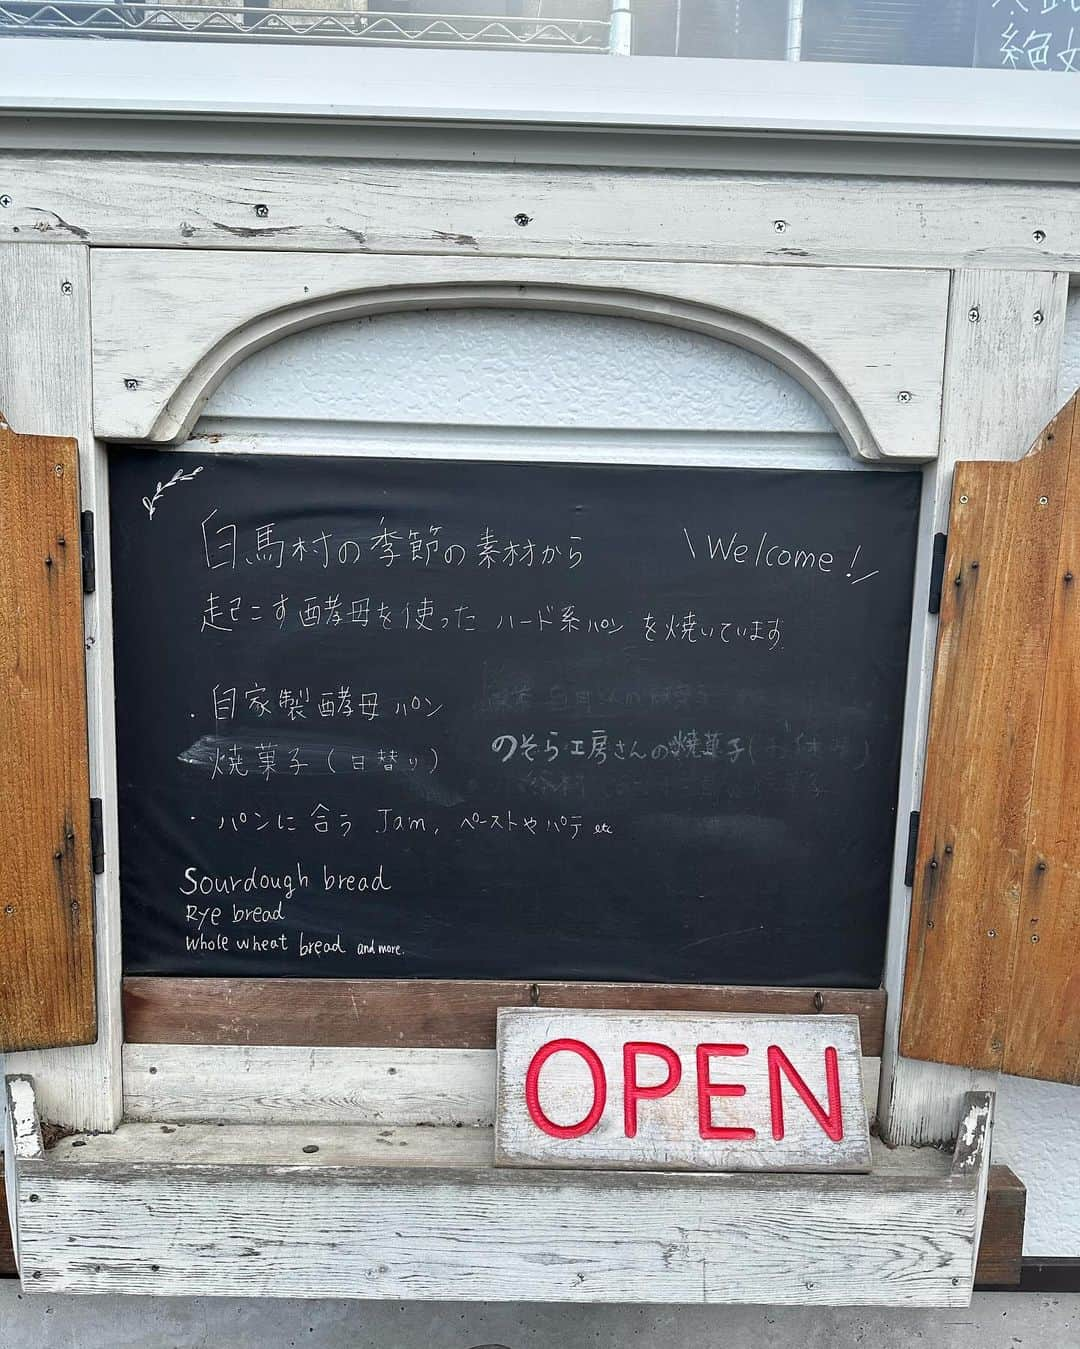 絶
白馬村の季節の素材から
\ Welcome! /
起こす酵母を使った ハード系パン を焼いています
・自家製酵母パン
焼菓子(日替り)
のそら工房さんの焼菓子(お休み)
・パンに合う Jam, ペーストやパテ etc
Sourdough bread
Rye bread
Whole wheat bread and more.
OPEN